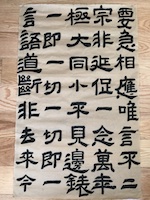 要急相應唯言不二
宗非延促一念萬年
極大同小不見邊表
一即一切一切即一
言語道斷非去來今